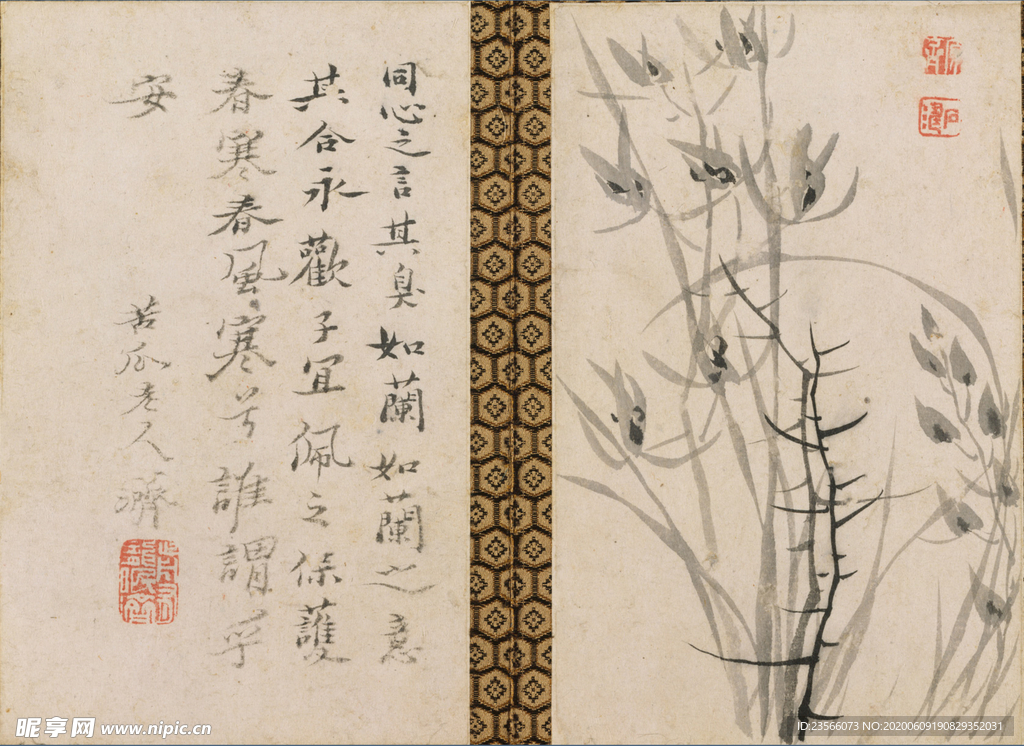 同心之言其臭如蘭如蘭之意
其合永歡子宜佩之保護
春寒春風寒兮誰謂乎
安
苦瓜老人濟
昵享网 www.nipic.cn
ID:23566073 NO:20200609190829352031